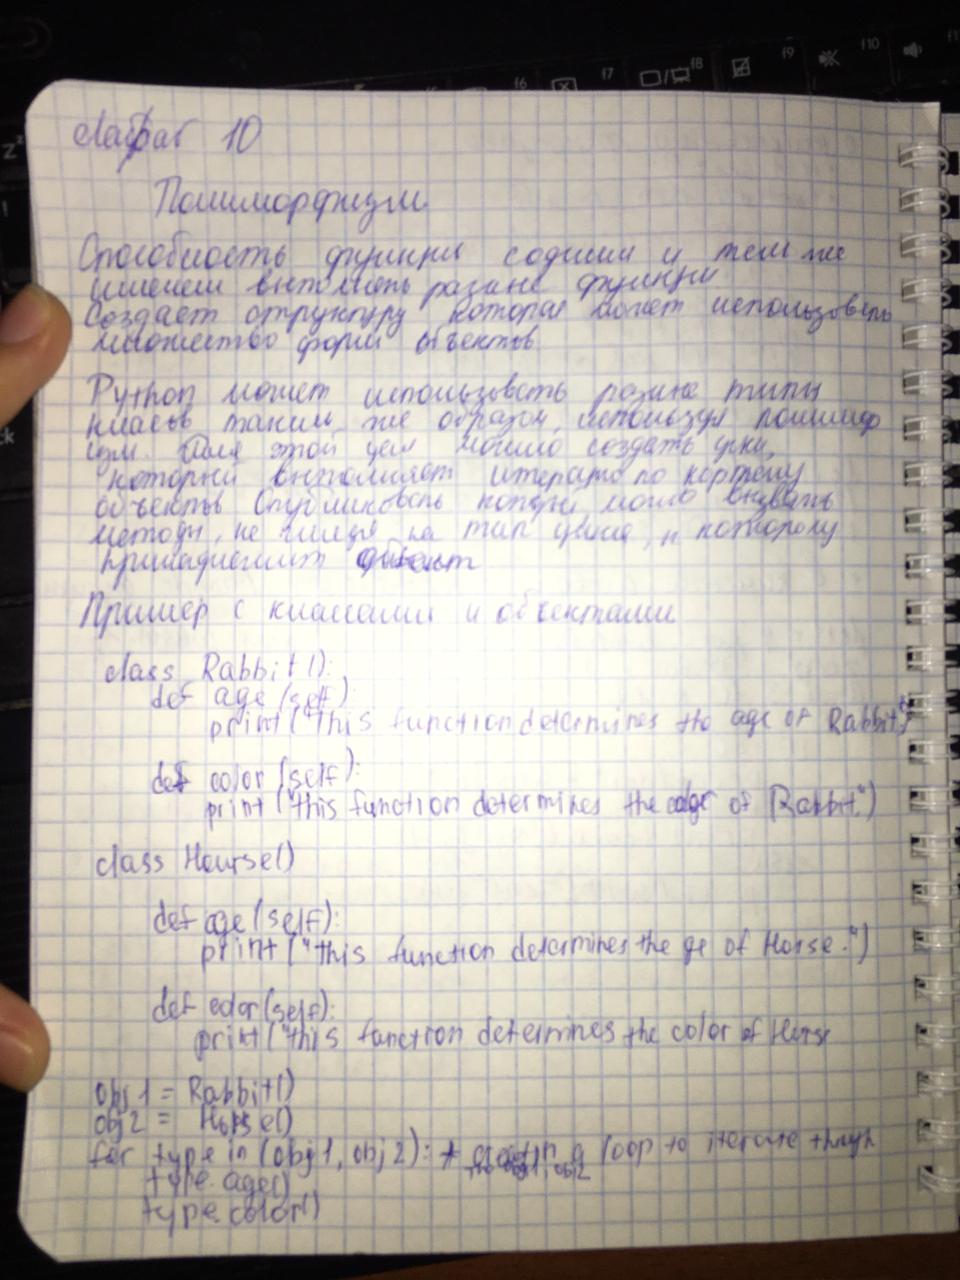 Лабраб 10
Полиморфизм
Способность функции с одним и тем же
именем выполнять разные функции
Создает структуру которая может использовать
множество форм объектов
Python может использовать разные типы
классов таким же образом, используя полиморф
изм. Для этой цели можно создать цикл,
который выполняет итерацию по кортежу
объектов
методы, не глядя на тип класса, к которому
принадлежит объект
Пример с классами и объектами
class Rabbit():
def age (self):
print ("this function determines the age of Rabbit."
def color (self):
print ("this function determines the color of Rabbit.")
class Hourse()
def age (self):
print ("this function determines the ge of Horse.")
def color (self):
print ("this function determines the color of Horse
obj1 = Rabbit()
obj2 = Horse()
for type in (obj1, obj2): a loop to iterate through
obj1, obj2
type.age()
type.color()